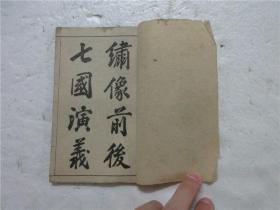 繡像前後
七國演義